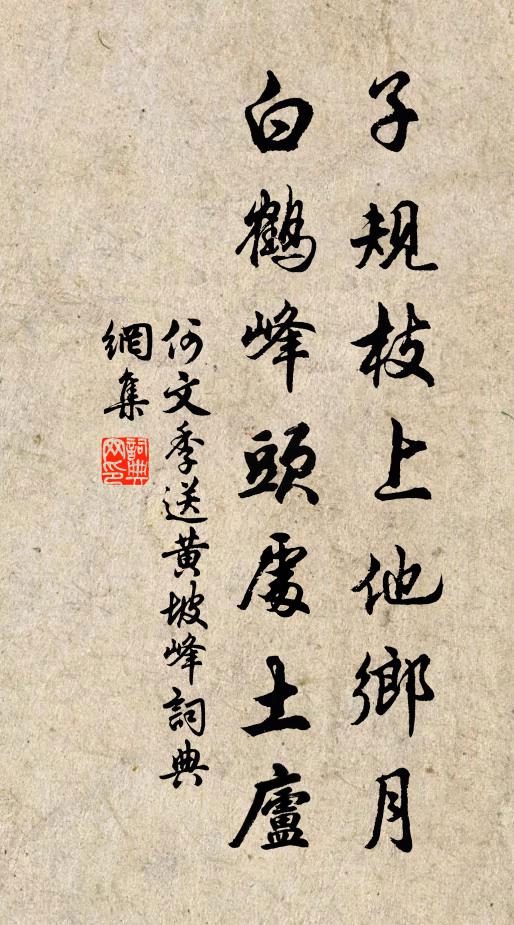 子規枝上他鄉月
白鶴峰頭處土廬
何文季送黄坡峰詞典
網集
詞典
网印